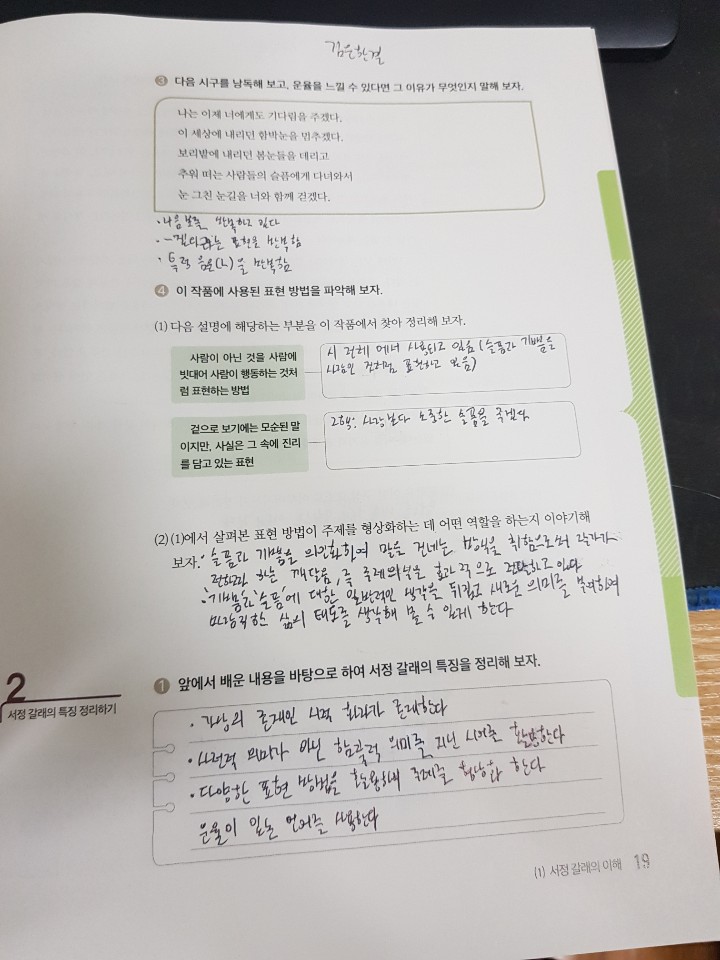 김은한결
3 다음 시구를 낭독해 보고, 운율을 느낄 수 있다면 그 이유가 무엇인지 말해 보자.
나는 이제 너에게도 기다림을 주겠다.
이 세상에 내리던 함박눈을 멈추겠다.
보리밭에 내리던 봄눈들을 데리고
추워 떠는 사람들의 슬픔에게 다녀와서
눈 그친 눈길을 너와 함께 걷겠다.
반복하고 있다
표현을 반복함
· 특정 음운(ㄴ)을 반복함
4 이 작품에 사용된 표현 방법을 파악해 보자.
(1) 다음 설명에 해당하는 부분을 이 작품에서 찾아 정리해 보자.
사람이 아닌 것을 사람에
빗대어 사람이 행동하는 것처
럼 표현하는 방법
시 전체에서 사용되고 있음 (슬픔과 기쁨을
사람인 것처럼 표현하고 있음)
겉으로 보기에는 모순된 말
이지만, 사실은 그 속에 진리
를 담고 있는 표현
2행: 사랑보다 소중한 슬픔을 주겠다
(2) (1)에서 살펴본 표현 방법이 주제를 형상화하는 데 어떤 역할을 하는지 이야기해
보자. · 슬픔과 기쁨을 의인화하여 말을 건네는 방식을 취함으로써 작가가
전하고자 하는 깨달음, 즉 주제의식을 효과적으로 전달하고 있다
· '기쁨'과 '슬픔'에 대한 일반적인 생각을 뒤집고 새로운 의미를 부여하여
바람직한 삶의 태도를 생각해 볼 수 있게 한다
2
서정 갈래의 특징 정리하기
1 앞에서 배운 내용을 바탕으로 하여 서정 갈래의 특징을 정리해 보자.
· 가상의 존재인 시적 화자가 존재한다
· 사전적 의미가 아닌 함축적 의미를 지닌 시어를 활용한다
· 다양한 표현 방법을 활용하여 주제를 형상화 한다
운율이 있는 언어를 사용한다
(1) 서정 갈래의 이해 19